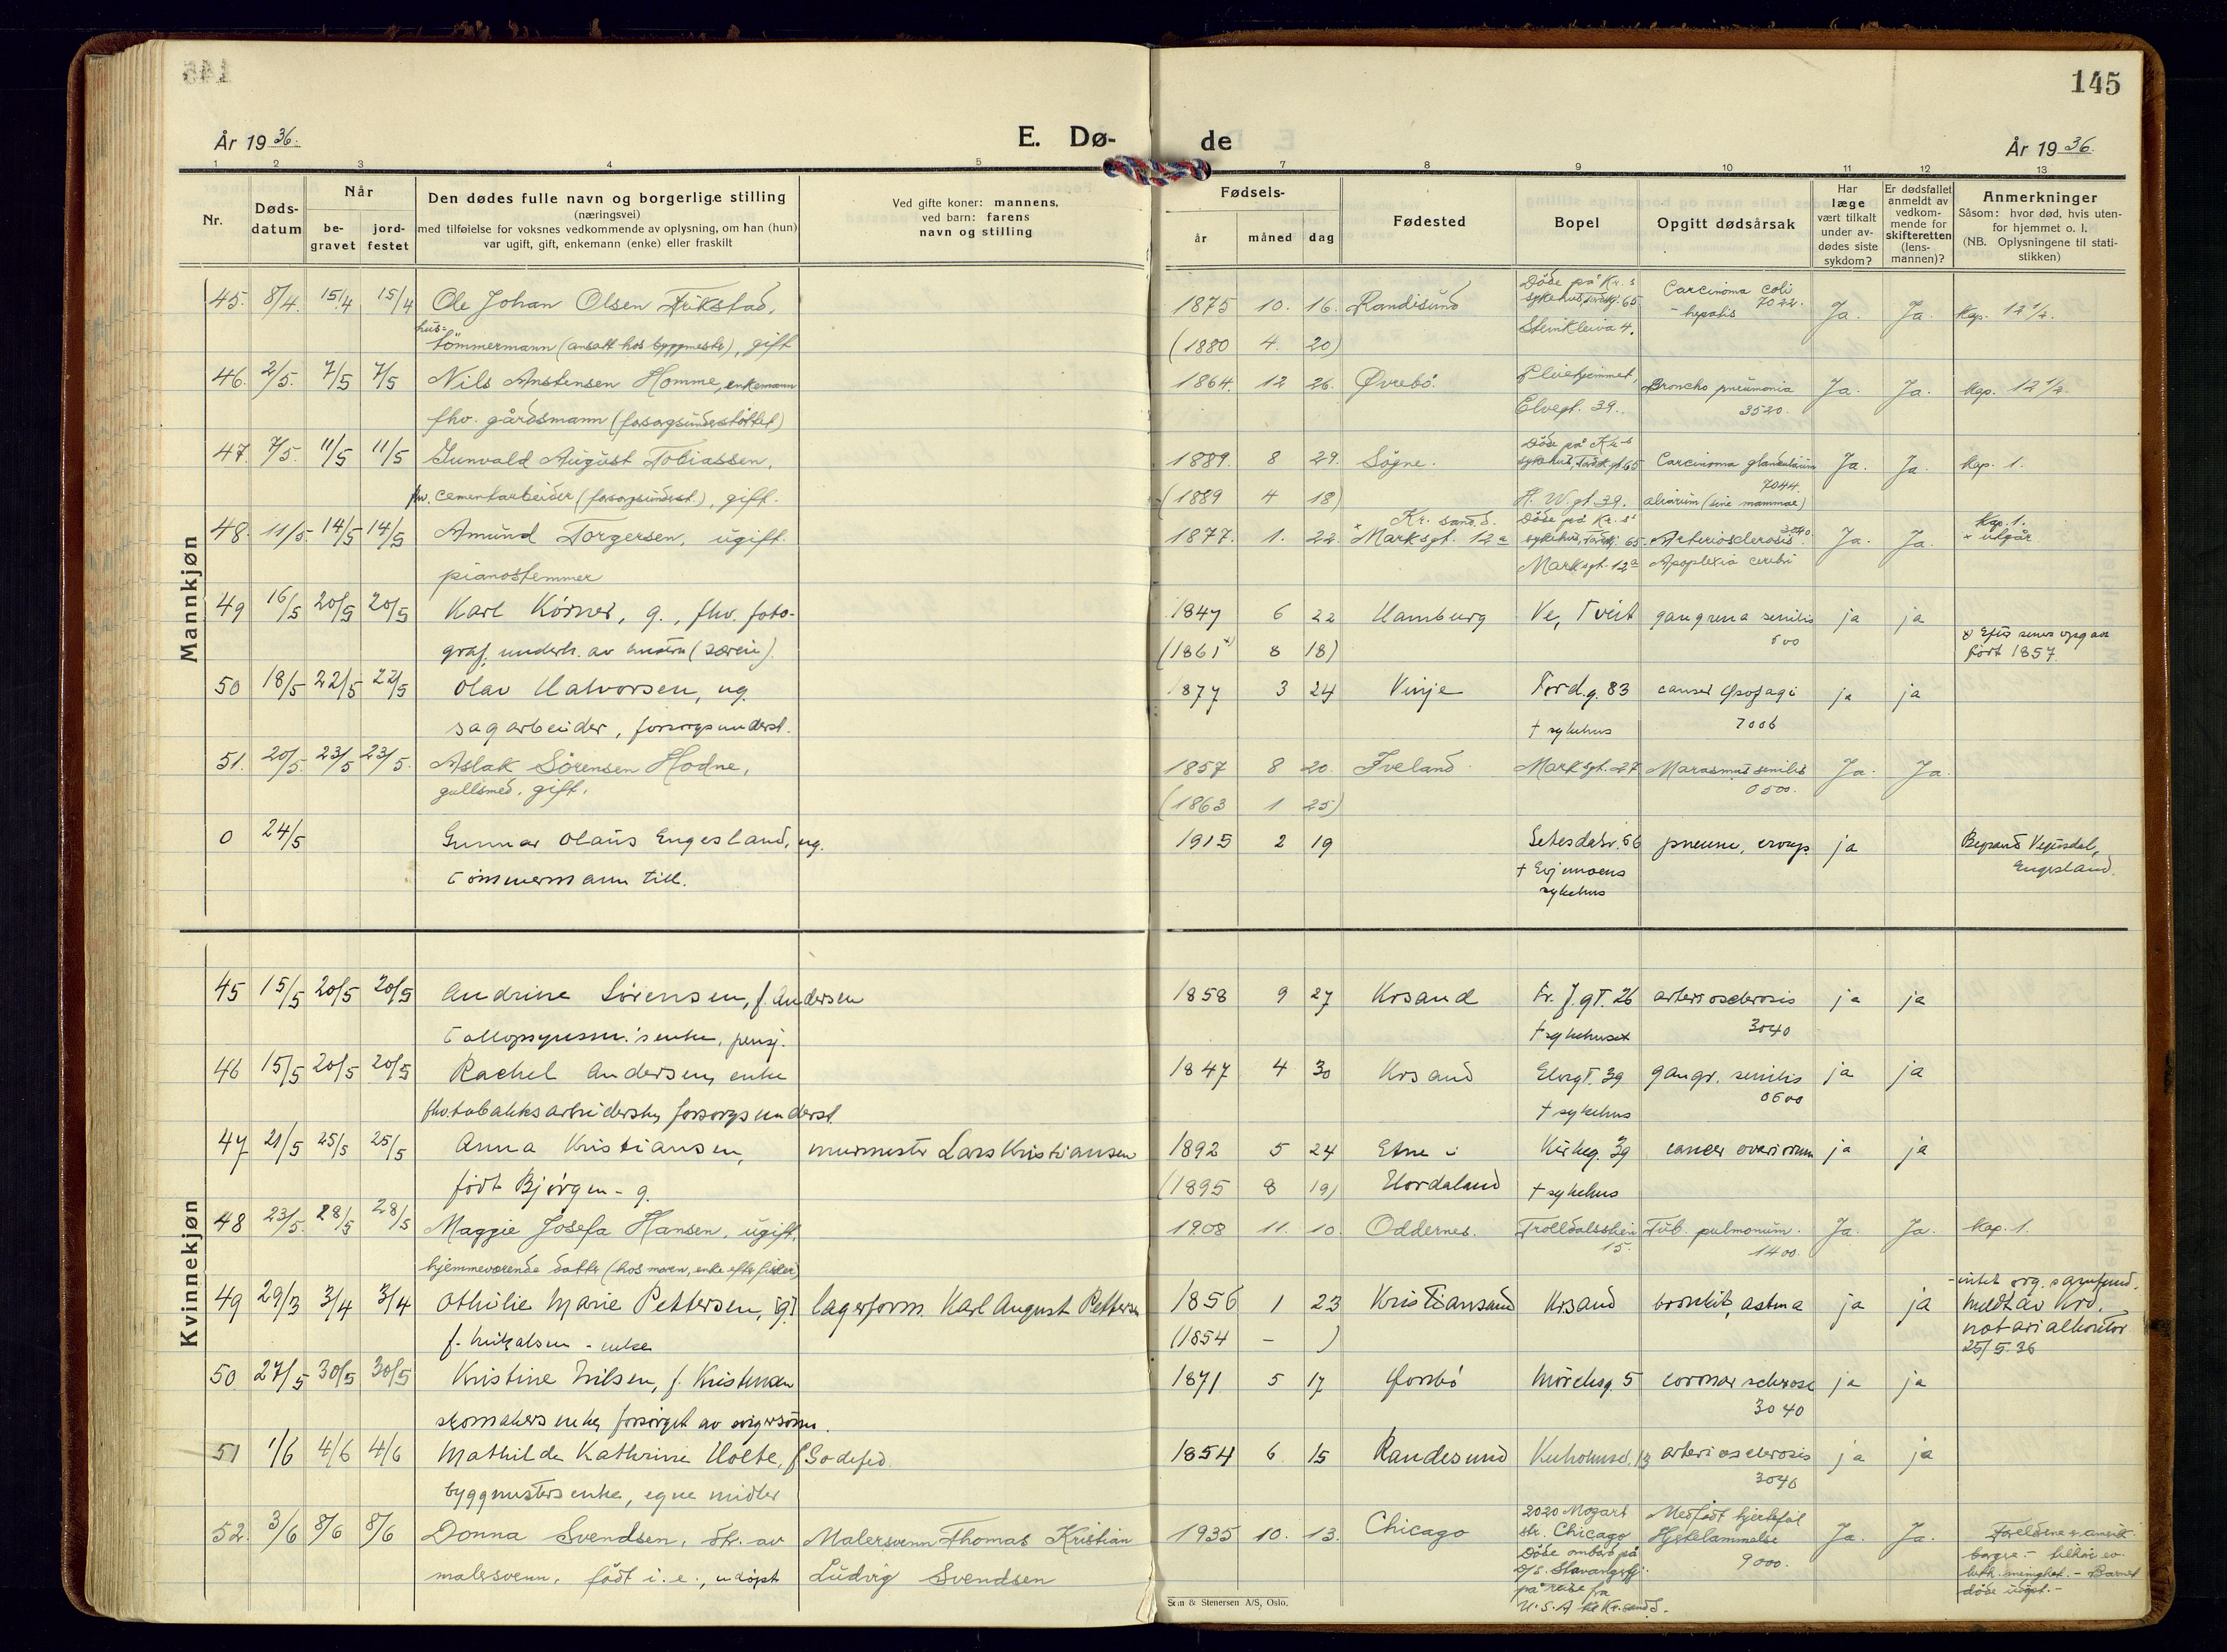 145
År 19 36.
E. Dø-
de
År 19 36.
1 2 3 4 5 7 8 9 10 11 12 13
Nr.
Døds-
datum
Når
be-
gravet
jord-
festet
Den dødes fulle navn og borgerlige stilling
(næringsvei)
med tilføielse for voksnes vedkommende av oplysning, om han (hun)
var ugift, gift, enkemann (enke) eller fraskilt
Ved gifte koner: mannens,
ved barn: farens
navn og stilling
Fødsels-
år
måned
dag
Fødested
Bopel
Opgitt dødsårsak
Har
læge
vært tilkalt
under av-
dødes siste
sykdom?
Er dødsfallet
anmeldt av
vedkom-
mende for
skifteretten
(lens-
mannen)?
Anmerkninger
Såsom: hvor død, hvis uten-
for hjemmet o. l.
(NB. Oplysningene til stati-
stikken)
Mannkjøn
45. 8/4. 15/4 15/4 Ole Johan Olsen Frikstad,
hus-
tömmermann (ansatt hos byggmester), gift
1875 10. 16. Randisund
(1880 4. 20)
Döde på Kr. s
sykehus, Tordskj. 65
Steinkleiva 4.
Carcinoma coli
- hepatis 7022.
Ja. Ja. Kap. 12 1/2.
46. 2/5. 7/5 7/5 Nils Anstensen Homme, enkemann
fhv. gårdsmann (forsorgsunderstöttet)
1864. 12 26. Øvrebö.
Pleiehjemmet,
Elvegt. 39.
Broncho pneumonia
3520.
Ja. Ja. Kap. 12 1/2.
47. 7/5. 11/5 11/5 Gunvald August Tobiassen,
fhv. cementarbeider (forsorgsunderst.), gift.
1889. 8 29. Sögne.
(1889 4 18)
Döde på Kr-s
sykehus, Tordsk. gt. 65
H. W. gt. 39.
Carcinoma glandularum
7044.
(sine mammae)
Ja. Ja. Kap. 1.
48. 11/5. 14/5 14/5 Amund Torgersen, ugift.
pianostemmer
1877. 1. 22.
x Kr. sand. S.
Marksgt. 12 a
Döde på Kr. s'
sykehus, Tordskj. 65.
Marksgt. 12 a
Arteriosclerosis 3040.
Apoplexia cerebri
Ja. Ja.
Kap. 1.
x utgår
49 16/5 20/5 20/5 Karl Körner, g., fhv. foto-
graf, underh. av hustru (særeie).
1847 6 22 Hamburg
(1861 x) 8 18)
Ve, Tveit
gangrena senilis
500
ja ja
x) Efter senere opgave
født 1857.
50 18/5 22/5 22/5 Olav Halvorsen, ug.
sagarbeider, forsorgsunderst.
1877 3 24 Vinje
Tord.g. 83
† sykehus
cancer øsofagi
7006
ja ja
51. 20/5. 23/5 23/5. Aslak Sörensen Hodne,
gullsmed, gift.
1857 8 20. Iveland.
(1863 1 25)
Marksgt. 27
Marasmus senilis
0500.
Ja. Ja.
0 24/5 Gunnar Olaus Engesland, ug.
tömmermann till.
1915 2 19
Setesdalsv. 56
† Evjemoens
sykehus
pneum. croup.
ja
Begravd Vegusdal,
Engesland.
Kvinnekjøn
45 15/5 20/5 20/5 Andrine Sörensen, f. Andersen
tollopsynsm.'s enke, pensj.
1858 9 27 Krsand
Fr. J. gt. 26
† sykehuset
arteriosclerosis
3040
ja ja
46 15/5 20/5 20/5 Rachel Andersen, enke
fhv. tobakksarbeiderske, forsorgsunderst.
1847 4 30 Krsand
Elvegt. 39
† sykehus
gangr. senilis
0500
ja ja
47 21/5 25/5 25/5 Anna Kristiansen, murmester Lars Kristiansen
født Bjørgen - g.
1892 5 24 Etne i
(1895 8 19) Hordaland
Kirkeg. 39
† sykehus
cancer ovariorum
ja ja
48 23/5. 28/5 28/5 Maggie Josefa Hansen, ugift,
hjemmeværende datter (hos moren, enke efter fisker)
1908 11. 10. Oddernes.
Trolldalsskleiv
15.
Tub. pulmonum.
1400.
Ja. Ja. Kap. 1.
49 29/3 3/4 3/4 Othilie Marie Pettersen, [g] lagerform. Karl August Pettersen
f. Mikalsen - enke
1856 1 23 Kristiansand
(1854 - )
Krsand
bronkit, astma
ja ja
- intet org. samfund.
Meldt av Krd.
notarialkontor
25/5.36
50 27/5 30/5 30/5 Kristine Nilsen, f. Kristensen
skomakers enke, forsörget av svigersönn.
1871 5 17
Mörcksg. 5
coronar sclerose
3040
ja ja
51 1/6 4/6 4/6 Mathilde Kathrine Holte, f. Godefed.
byggmesters enke, egne midler
1854 6 15 Randesund
Kuholmsv. 13
arteriosclerosis
3040
ja ja
52. 3/6 8/6 8/6 Donna Svendsen, dtr. av Malersvenn Thomas Kristian
malersvenn, født i. e., udöpt Ludvig Svendsen
1935 10. 13. Chicago
2020 Mozart
str. Chicago
Döde ombord på
D/S. Stavangerfj.
på reise fra
U.S.A til Kr.sand S.
Medfödt hjertefeil
Hjertelammelse
9000.
Ja. Ja.
Foreldrene er amerik.
borgere. - tilhör ev.
luth. menighet. - Barnet
döde udöpt. -
Sem & Stenersen A/S, Oslo.